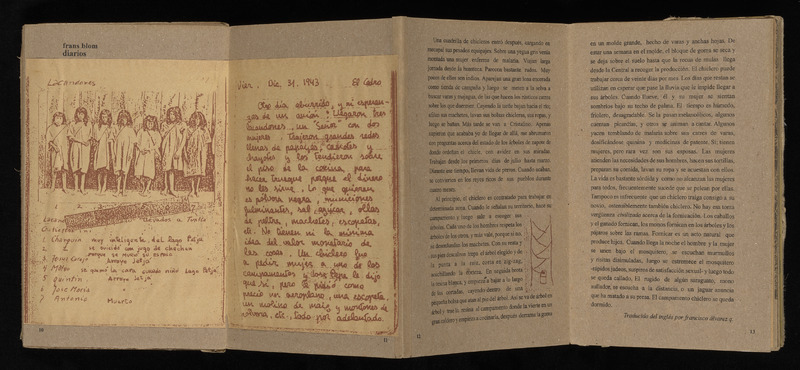 frans blom
diarios
Lacandones
1 Chanquin muy inteligente. del Lago Petja
2 " se suicidó con jugo de chechem
porque se murió su esposa
3 Jorge Arroyo Petja
4 Mateo se quemó la cara cuando niño Lago Petja
5 Quintin Arroyo Petja
6 Jose Maria "
7 Antonio Muerto
10
Vier. Dic. 31. 1943 El Cedro
Otro día aburrido, y ni esperan-
zas de un avion! Llegaron tres
lacandones, un Señor con dos
mujeres. Trajeron grandes redes
llenas de papayas, camotes y
chayotes y los tendieron sobre
el piso de la cocina, para
hacer trueque porque el dinero
no les sirve. Lo que quieren
es polvora negra, municiones
fulminantes, sal, azucar, ollas
de peltre, machetes, escopetas,
etc. No tienen ni la minima
idea del valor monetario de
las cosas. Un chiclero fue
a pedir mujer a uno de los
campamentos y dijo que le dijo
que sí, pero le pidio como
precio un aeroplano, una escopeta,
un molino de maiz y montones de
polvora. etc., todo por adelantado.
11
Una cuadrilla de chicleros entró después, cargando en
mecapal sus pesados equipajes. Sobre una yegua gris venía
montada una mujer enferma de malaria. Vienen larga
jornada desde la hondura. Parecen bastante rudos. Muy
pocos de ellos son indios. Aparejan una gran lona encerada
como tienda de campaña y luego se meten a la selva a
buscar varas y majaguas, de las que hacen los rústicos catres
sobre los que duermen. Cayendo la tarde bajan hasta el río;
afilan sus machetes, lavan sus bolsas chicleras, sus ropas, y
luego se bañan. Más tarde se van a Cristalino. Apenas
supieron que acababa yo de llegar de allá, me abrumaron
con preguntas acerca del estado de los árboles de zapote de
donde ordeñan el chicle, con avidez en sus miradas.
Trabajan desde los primeros días de julio hasta marzo.
Durante ese tiempo, llevan vida de perros. Cuando acaban,
se convierten en los reyes ricos de sus pueblos durante
cuatro meses.
Al principio, el chiclero es contratado para trabajar en
determinada zona. Cuando le señalan su territorio, hace su
campamento y luego sale a escoger sus
árboles. Cada uno de los hombres respeta los
árboles de los otros, y más vale, porque si no,
se desenfundan los machetes. Con su reata y
sus garfios trepa el árbol elegido y de
la punta a la raíz, corta en zig-zag,
acuchillando la corteza. En seguida brota
la resina blanca, y empieza a bajar a lo largo
de las cortadas, cayendo dentro de una
pequeña bolsa que está al pie del árbol. Así se va de árbol en
árbol y trae la resina al campamento donde la vierte en un
gran caldero y empieza a cocinarla, después derrama la goma
12
en un molde grande, hecho de varas y anchas hojas. De
estar una semana en el molde, el bloque de goma se seca y
se deja sobre el suelo hasta que la recua de mulas llega
desde la Central a recoger la producción. El chiclero puede
trabajar cerca de veinte días por mes. Los días que restan se
utilizan en esperar que pase la lluvia que le impide llegar a
sus árboles. Cuando llueve, él y su mujer se sientan
sombríos bajo su techo de palma. El tiempo es húmedo,
friolento, desagradable. Se la pasan melancólicos, algunos
cuentan picardías, y otros se animan a cantar. Algunos
yacen temblando de malaria sobre sus camas de varas,
dosificándose quinina y medicinas de patente. Si tienen
mujeres, pero rara vez son sus esposas. Las mujeres
atienden las necesidades de sus hombres, hacen sus tortillas,
preparan su comida, lavan su ropa y se acuestan con ellos.
La vida es bastante sórdida y como no alcanzan las mujeres
para todos, frecuentemente sucede que se pelean por ellas.
Tampoco es infrecuente que un chiclero traiga consigo a su
novio, ostensiblemente también chiclero. No hay una tonta
vergüenza civilizada acerca de la fornicación. Los caballos
y el ganado fornican, los monos fornican en los árboles y los
pájaros sobre las ramas. Fornicar es un acto natural que
produce hijos. Cuando llega la noche el hombre y la mujer
se unen bajo el mosquitero, se escuchan murmullos
y risitas disimuladas, luego se estremece el mosquitero
-sepulta jadeos, suspiros de satisfacción sexual- y luego todo
se queda callado. El rugido de algún saraguato, mono
aullador, se escucha a la distancia, o un jaguar anuncia
que ha matado a su presa. El campamento chiclero se queda
dormido.
Traducido del inglés por francisco álvarez q.
13